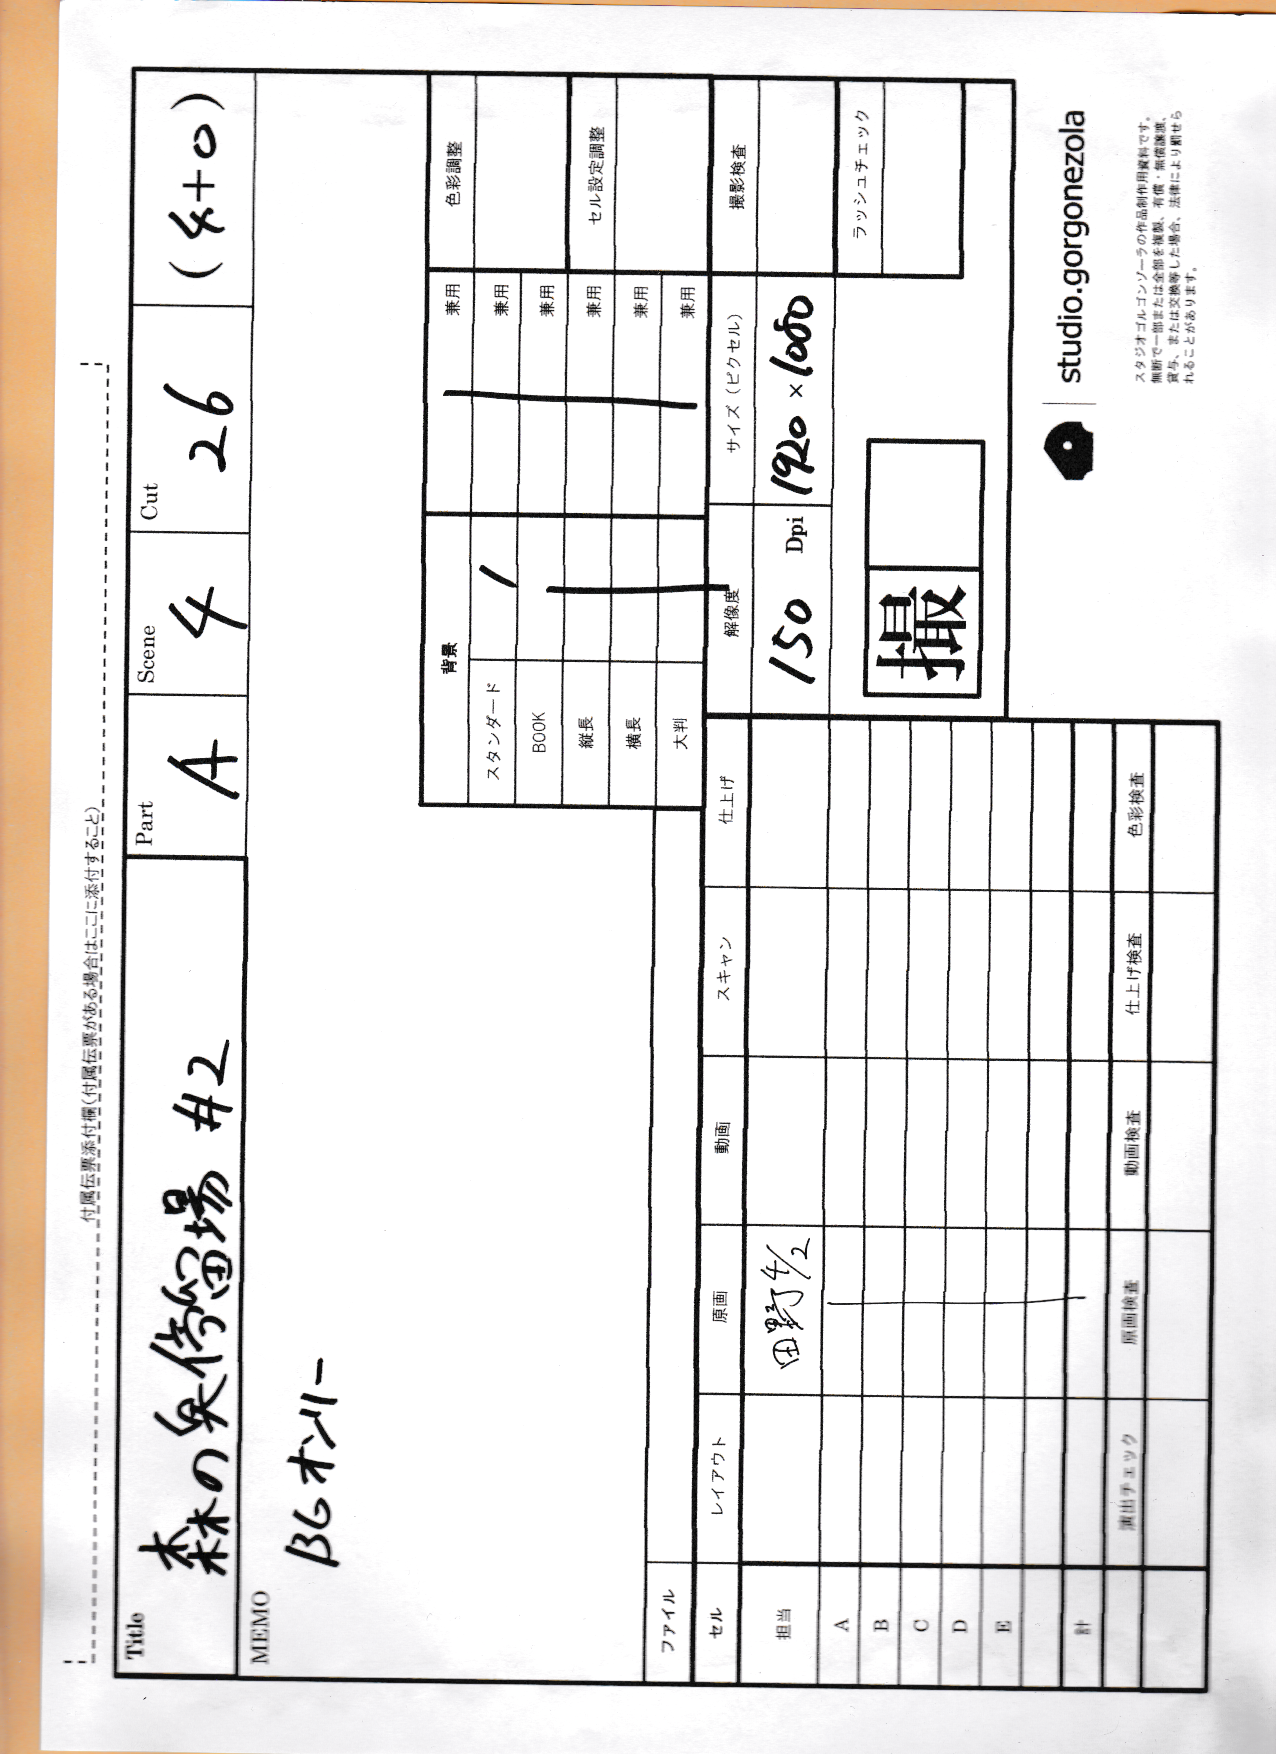 付属伝票添付欄(付属伝票がある場合はここに添付すること)
Title
森の停留場 #2
Part
A
Scene
4
Cut
26
(4+0)
MEMO
BGオンリー
背景
兼用
色彩調整
スタンダード
1
兼用
BOOK
兼用
縦長
兼用
セル設定調整
横長
兼用
大判
兼用
解像度
サイズ(ピクセル)
撮影検査
150 Dpi
1920×1080
ラッシュチェック
撮
ファイル
セル
レイアウト
原画
動画
スキャン
仕上げ
担当
田野 4/2
A
B
C
D
E
計
演出チェック
原画検査
動画検査
仕上げ検査
色彩検査
studio.gorgonezola
スタジオゴルゴンゾーラの作品制作用資料です。
無断で一部または全部を複製、有償・無償譲渡、
貸与、または交換等した場合、法律により罰せら
れることがあります。